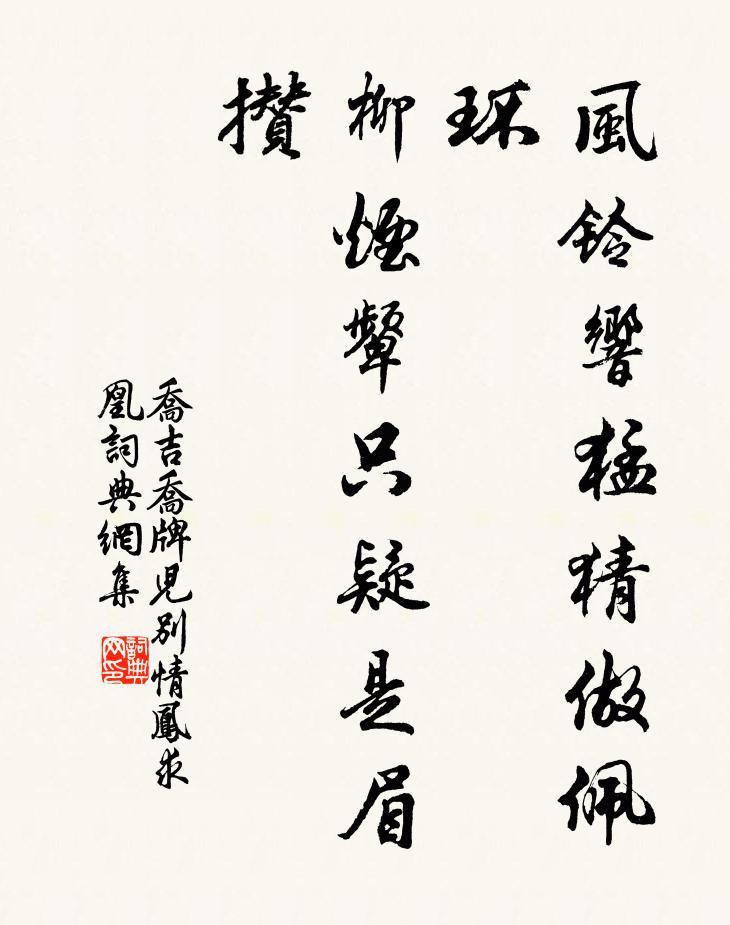 風鈴響猛猜做佩
琛
柳煙顰只疑是眉
攢
喬吉喬牌兒別情鳳求
凰詞典網集
詞典网印